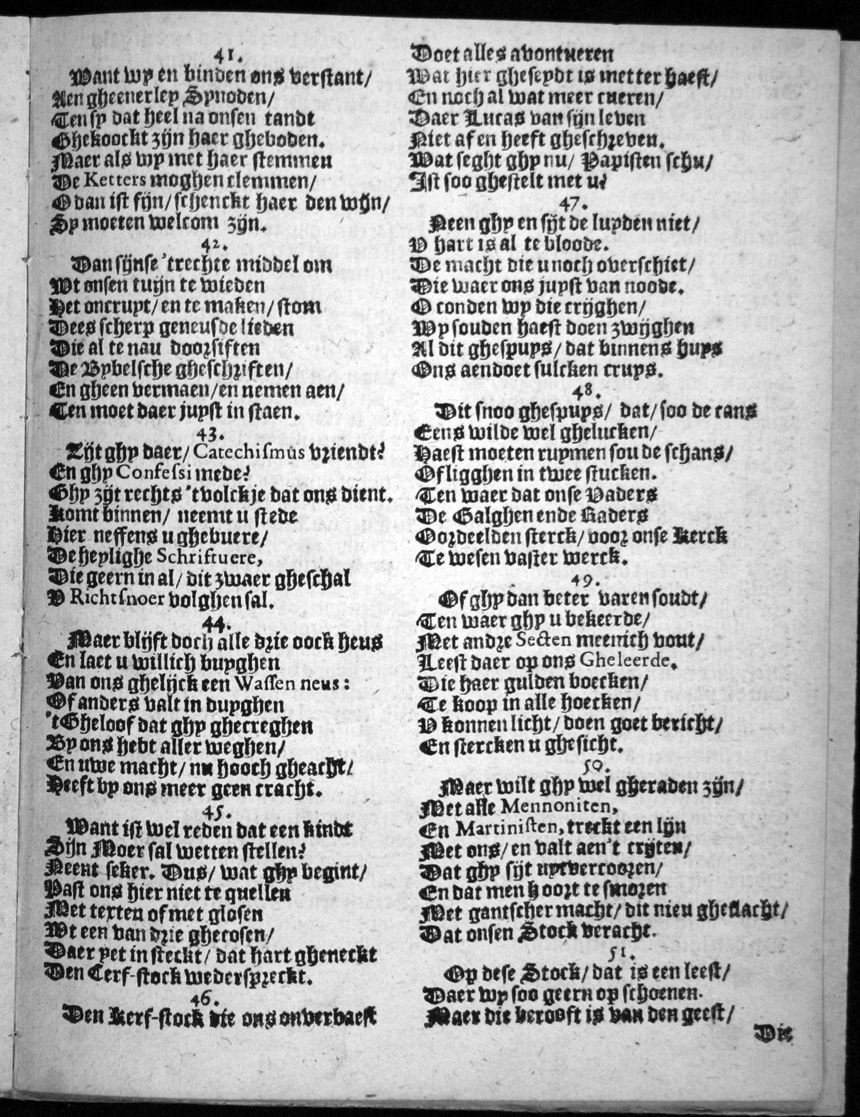 41.
Want wy en binden ons verstant/
Aen gheenerley Synoden/
Ten sy dat heel na onsen tandt
Ghekoockt zijn haer gheboden.
Maer als wy met haer stemmen
De Ketters moghen clemmen/
O dan ist fijn/ schenckt haer den wijn/
Sy moeten welcom zijn.
42.
Dan sijnse 'trechte middel om
Wt onsen tuijn te wieden
Het oncruyt/ en te maken/ stom
Dees scherp geneusde lieden
Die al te nau doorsiften
De Bybelsche gheschriften/
En gheen vermaen/ en nemen aen/
Ten moet daer juyst in staen.
43.
Zijt ghy daer/ Catechismus vriendt?
En ghy Confessi mede?
Ghy zijt rechts 'tvolckje dat ons dient.
Komt binnen/ neemt u stede
Hier neffens u ghebuere/
De heylighe Schriftuere,
Die geern in al/ dit zwaer gheschal
V Richtsnoer volghen sal.
44.
Maer blijft doch alle drie oock heus
En laet u willich buyghen
Van ons ghelijck een Wassen neus:
Of anders valt in duyghen
'tGheloof dat ghy ghecreghen
By ons hebt aller weghen/
En uwe macht/ nu hooch gheacht/
Heeft by ons meer geen cracht.
45.
Want ist wel reden dat een kindt
Sijn Moer sal wetten stellen?
Neent seker. Dus/ wat ghy begint/
Past ons hier niet te quellen
Met texten of met glosen
Wt een van drie ghecosen/
Daer yet in steckt/ dat hart gheneckt
Den Cerf-stock wederspreckt.
46.
Den Kerf-stock die ons onverbaest
Doet alles avontueren
Wat hier gheseydt is metter haest/
En noch al wat meer cueren/
Daer Lucas van sijn leven
Niet af en heeft gheschreven.
Wat seght ghy nu/ Papisten schu/
Ist soo ghestelt met u?
47.
Neen ghy en sijt de luyden niet/
V hart is al te bloode.
De macht die u noch overschiet/
Die waer ons juyst van noode.
O conden wy die crijghen/
Wy souden haest doen zwijghen
Al dit ghespuys/ dat binnens huys
Ons aendoet sulcken cruys.
48.
Dit snoo ghespuys/ dat/ soo de cans
Eens wilde wel ghelucken/
Haest moeten ruymen sou de schans/
Of ligghen in twee stucken.
Ten waer dat onse Vaders
De Galghen ende Raders
Oordeelden sterck/ voor onse Kerck
Te wesen vaster werck.
49.
Of ghy dan beter varen soudt/
Ten waer ghy u bekeerde/
Met andre Secten meenich vout/
Leest daer op ons Gheleerde.
Die haer gulden boecken/
Te koop in alle hoecken/
V konnen licht/ doen goet bericht/
En stercken u ghesicht.
50.
Maer wilt ghy wel gheraden zijn/
Met alle Mennoniten,
En Martinisten, treckt een lijn
Met ons/ en valt aen't crijten/
Dat ghy sijt uytvercooren/
En dat men hoort te smoren
Met gantscher macht/ dit nieu gheslacht/
Dat onsen Stock veracht.
51.
Op dese Stock/ dat is een leest/
Daer wy soo geern op schoenen.
Maer die berooft is van den geest/
Die